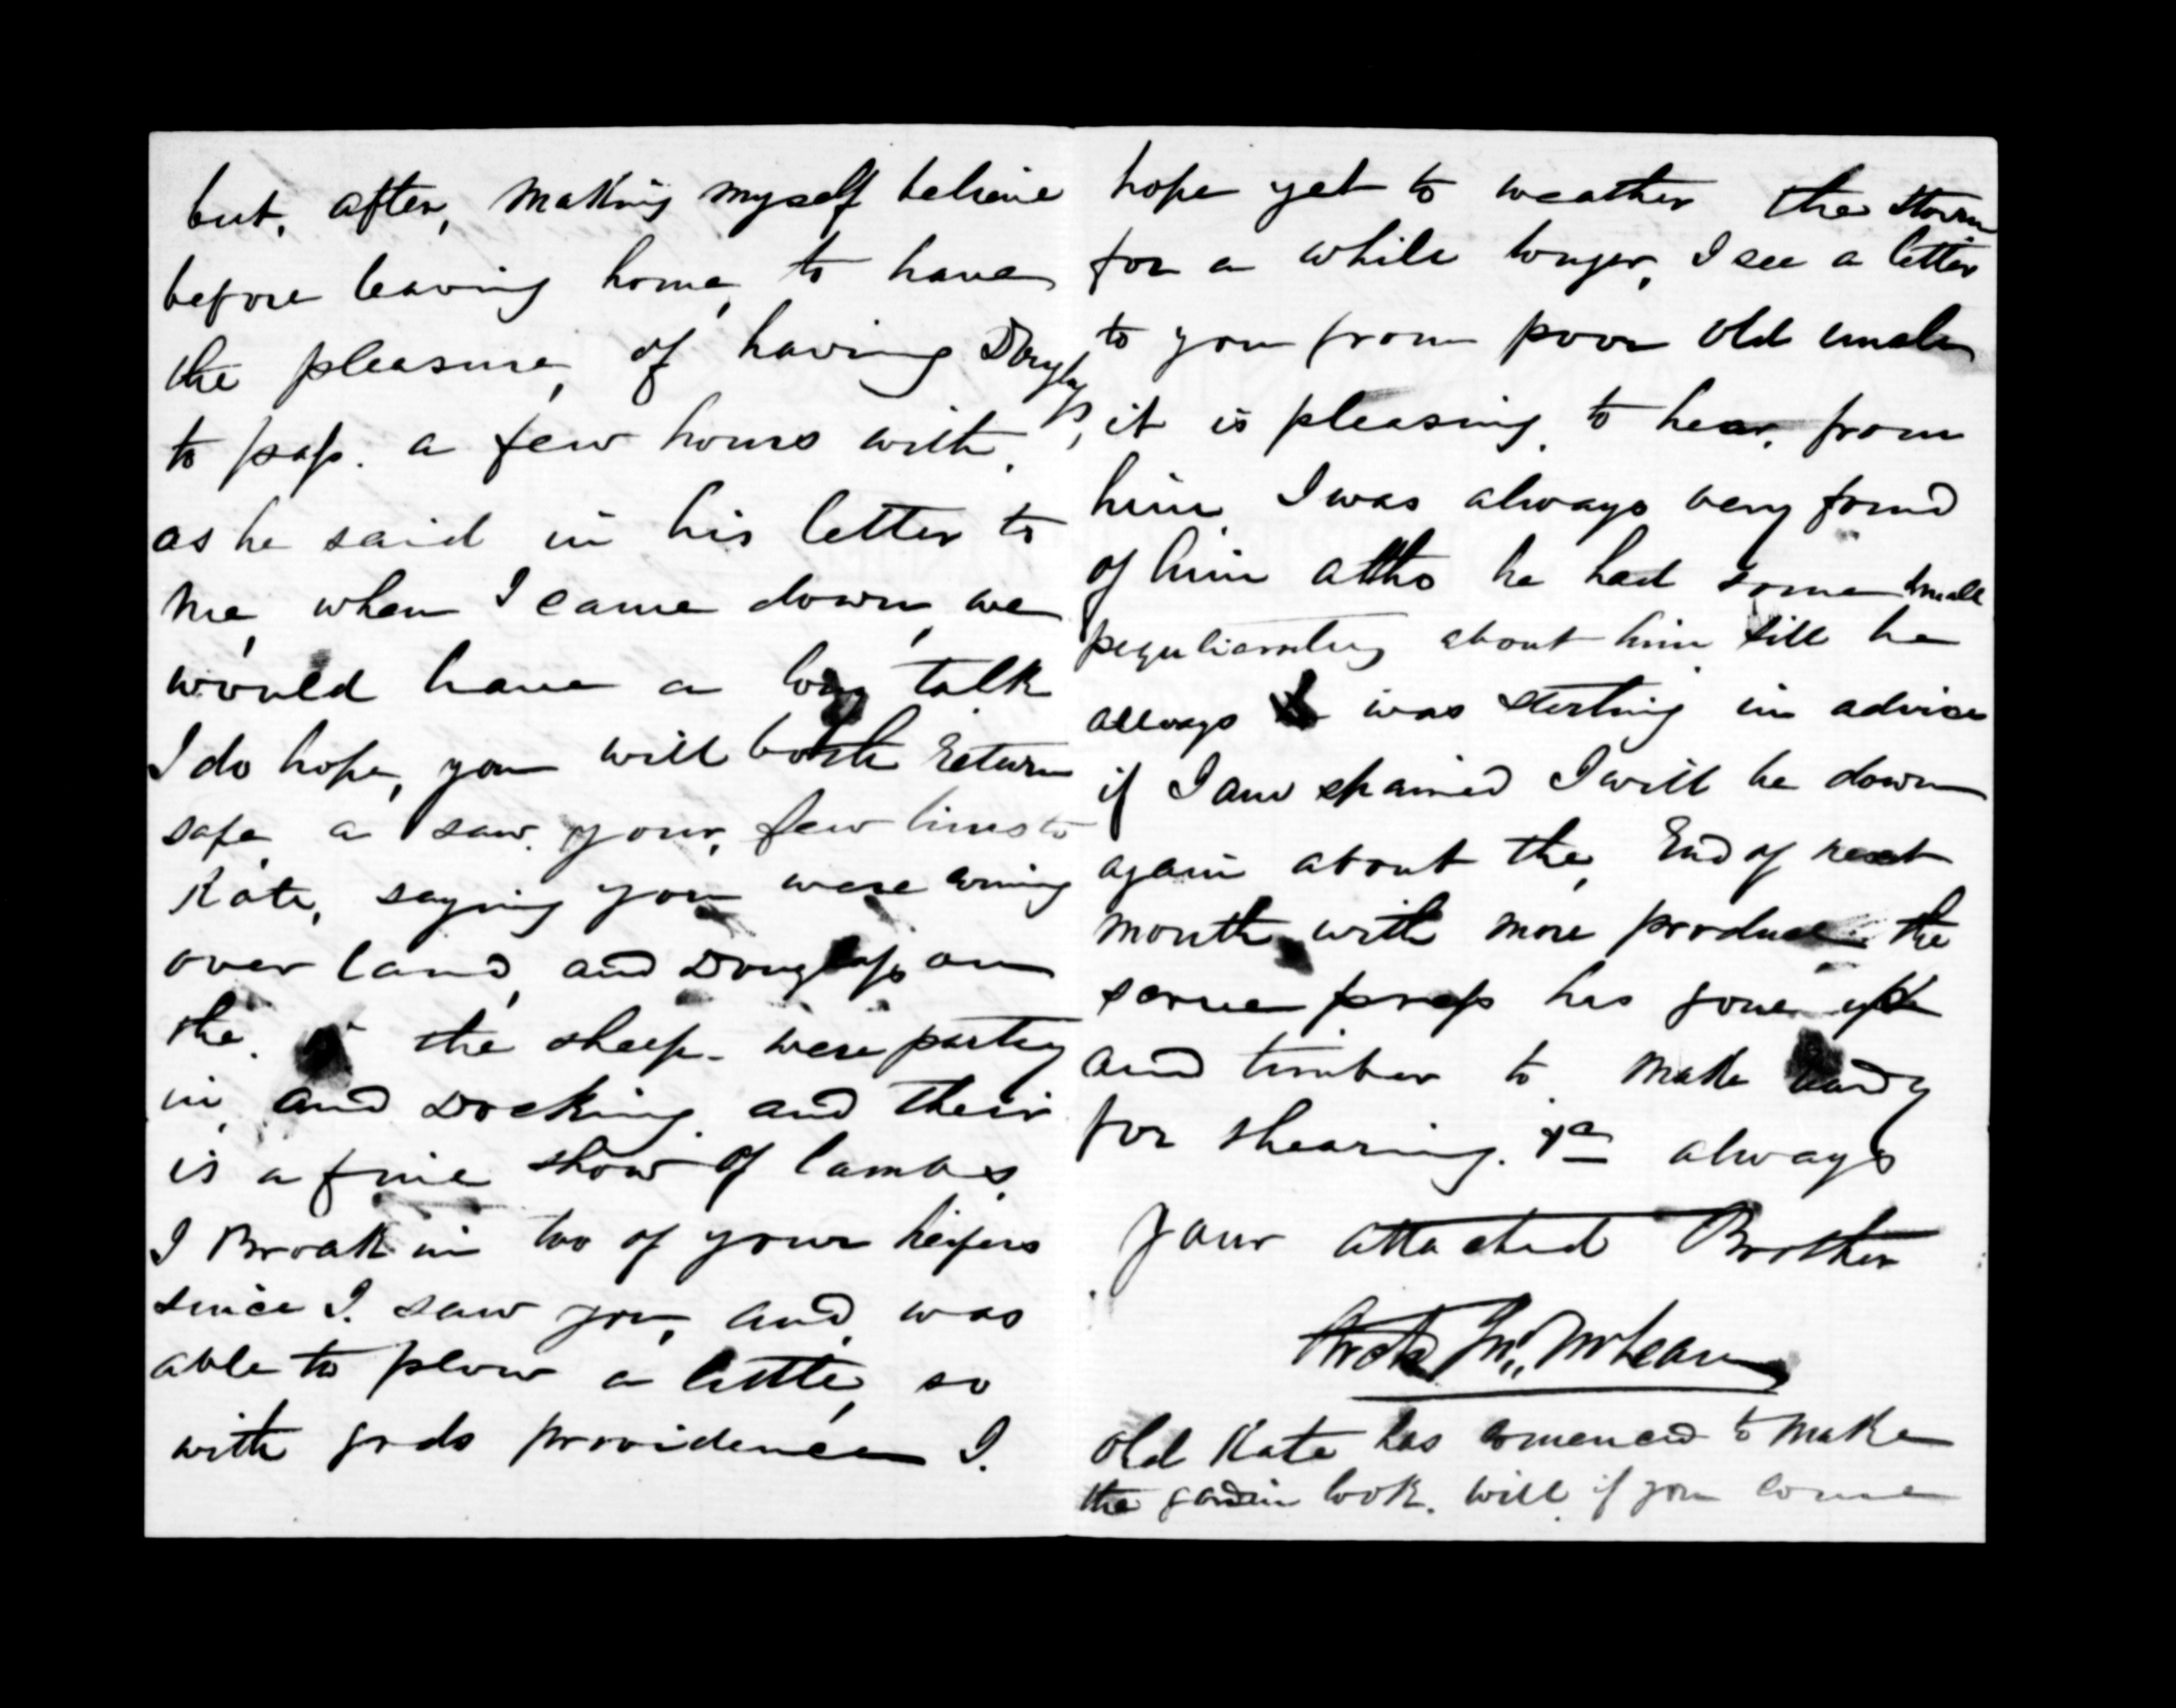 but, after, making myself believe
before leaving home, to have
the pleasure, of having Douglass,
to pass. a few hours with.
as he said in his letter to
me, when I came down, we
would have a long talk
I do hope, you will both return
safe, a saw. your, few lines to
Kate, saying you were coming
over land, and Douglass on
the. the sheep. were partly
in, and Docking. and their
is a fine show of lambs,
I Broak in two of your heifers
since I. saw you, and, was
able to plow a little, so
with gods providence I.
hope yet to weather the storm
for a while longer, I see a letter
to you from poor old uncle
it is pleasing. to hear, from
him, I was always very fond
of him altho he had some small
about him till he
allways was sterling in advice
if I am spaired I will be down
again about the, End of next
month with more produce. the
screw press has gone up
and timber to make
for shearing. always
your attached Brother
Archd Jn. McLean
old Kate has comenced to make
the garden look. will, if you come